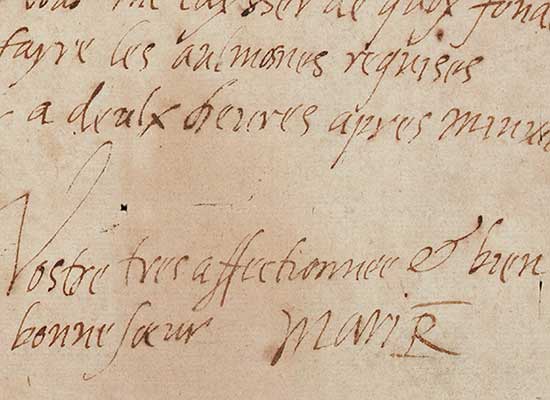 me laysser de quoy fond
fayre les aulmones requises
a deulx heures apres minui
Vostre tres affectionnee & bien
bonne sœur Mari R